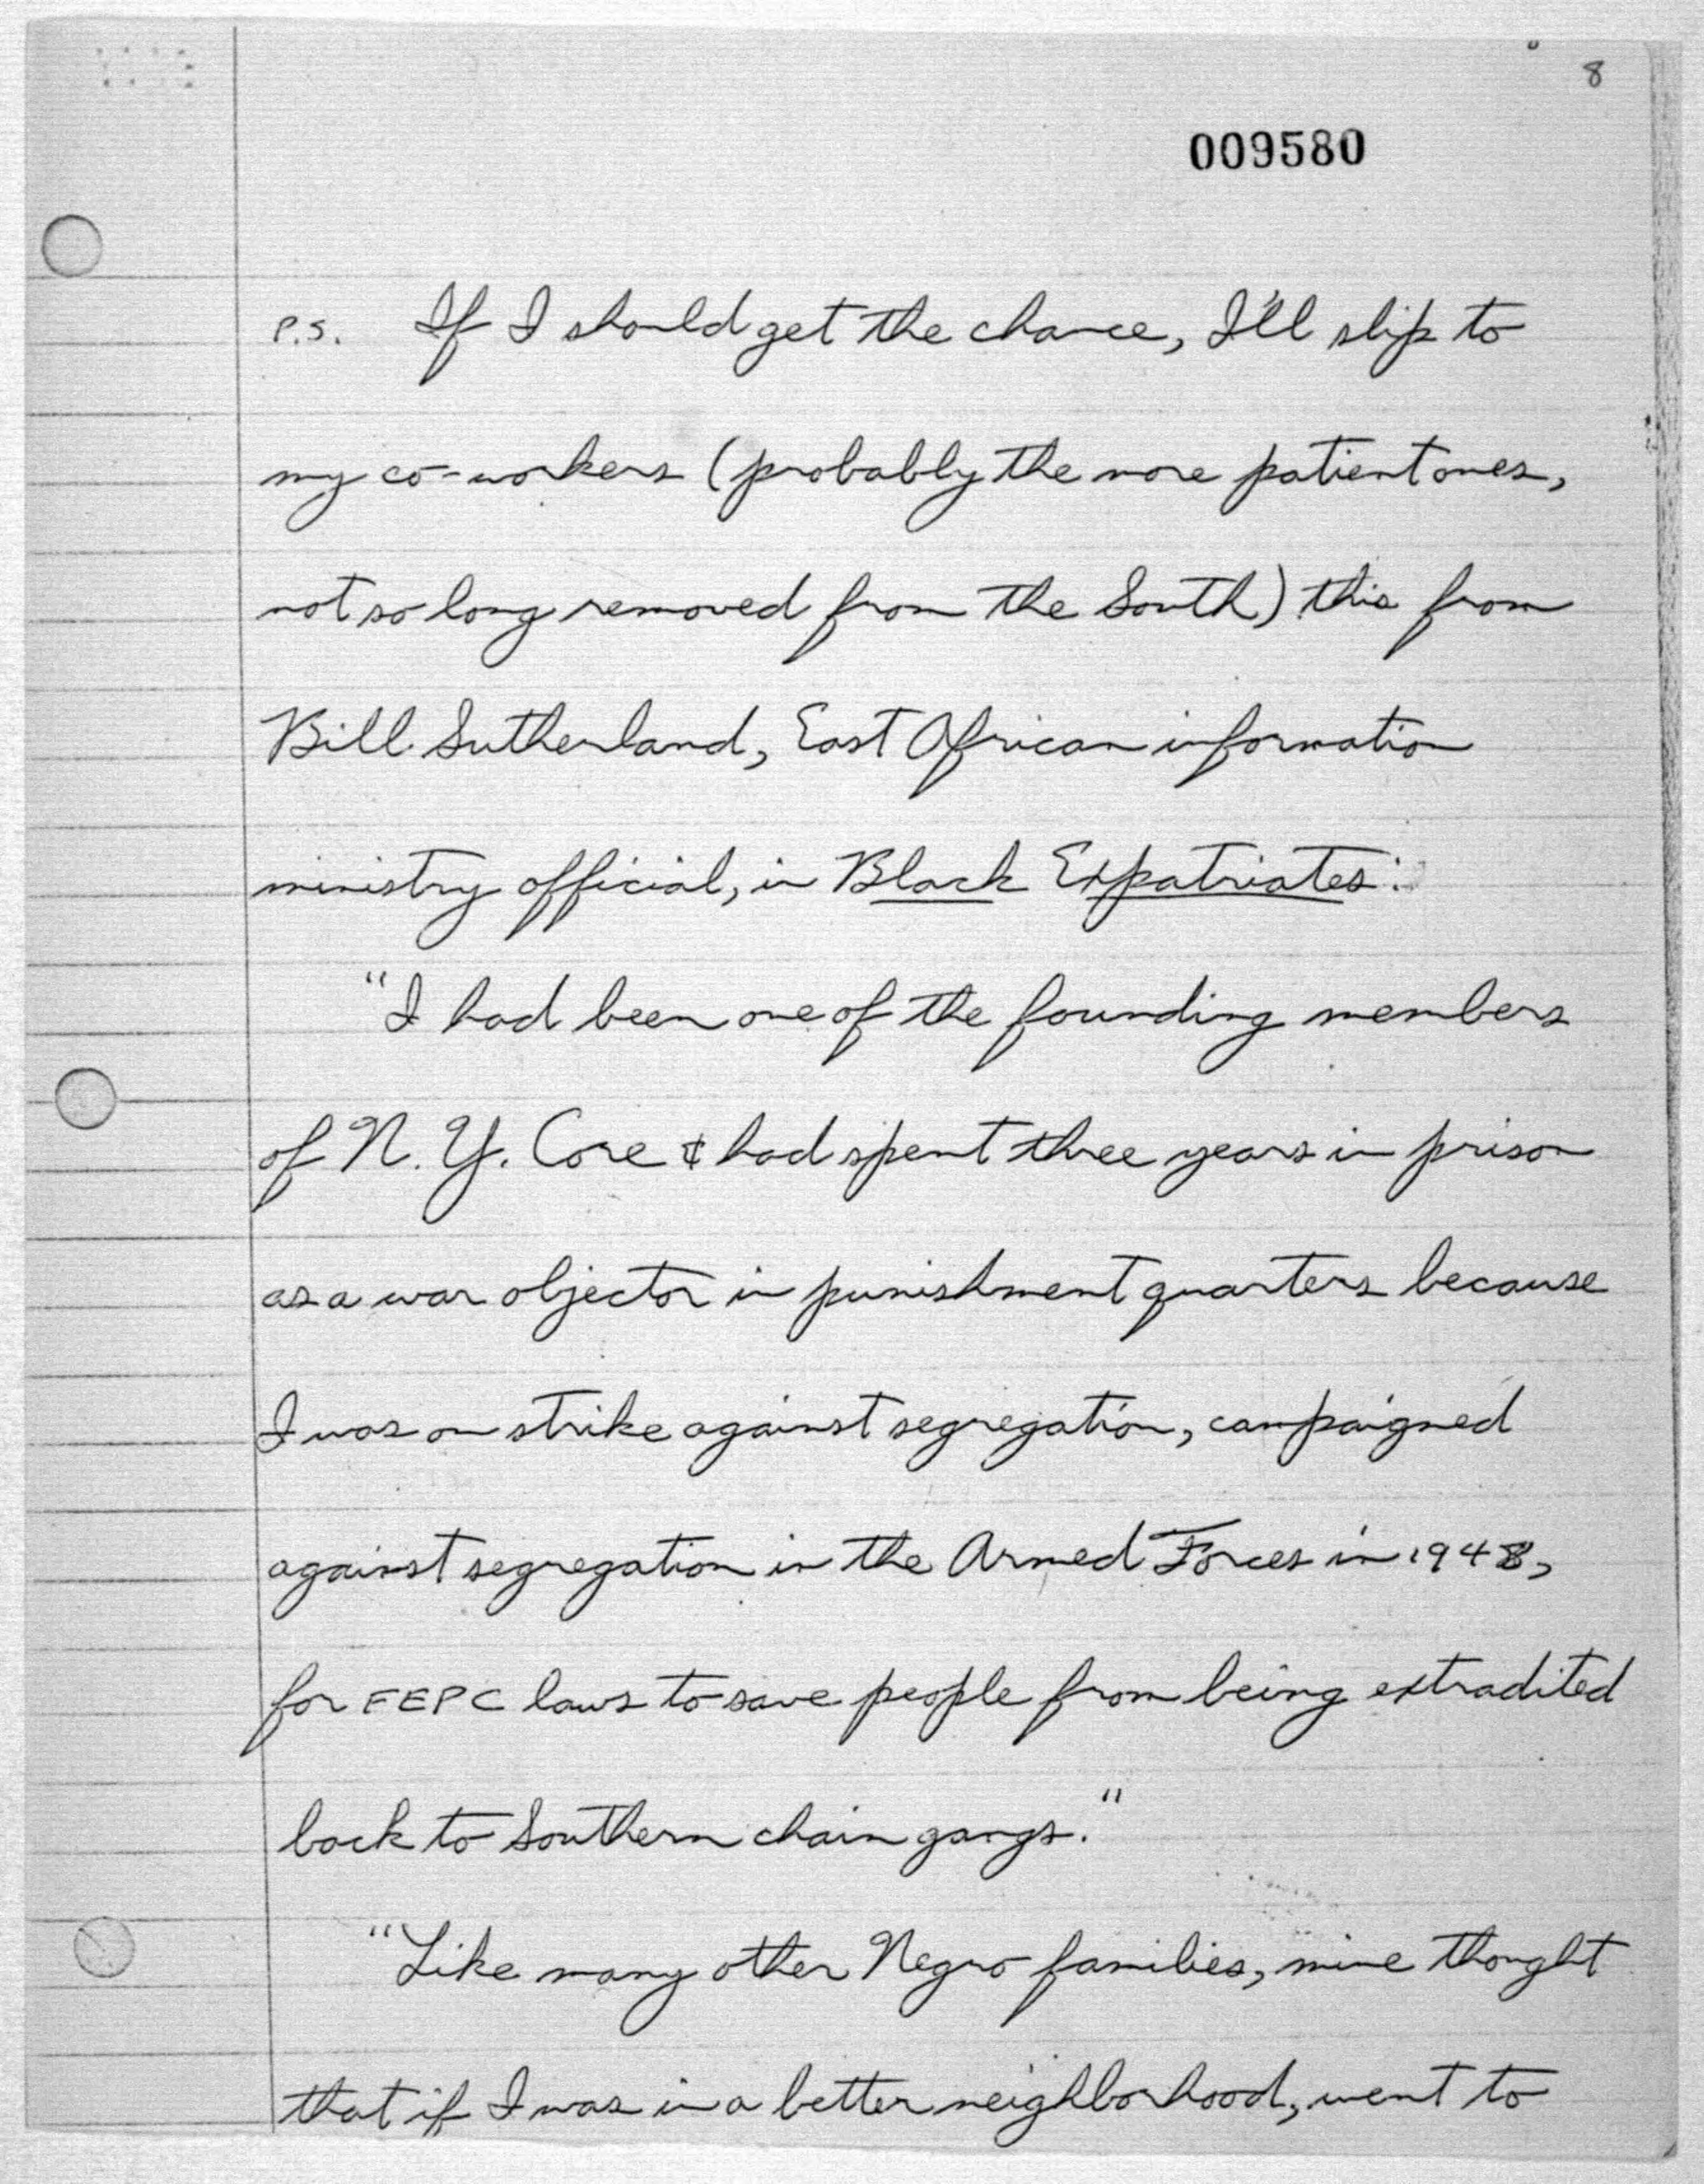 8
009580
P.S. If I should get the chance, I'll slip to
my co-workers (probably the more patient ones,
not so long removed from the South) this from
Bill Sutherland, East African information
ministry official, in Black Expatriates:
"I had been one of the founding members
of N. Y. Core & had spent three years in prison
as a war objector in punishment quarters because
I was on strike against segregation, campaigned
against segregation in the Armed Forces in 1948,
for FEPC laws to save people from being extradited
back to Southern chain gangs."
"Like many other Negro families, mine thought
that if I was in a better neighborhood, went to